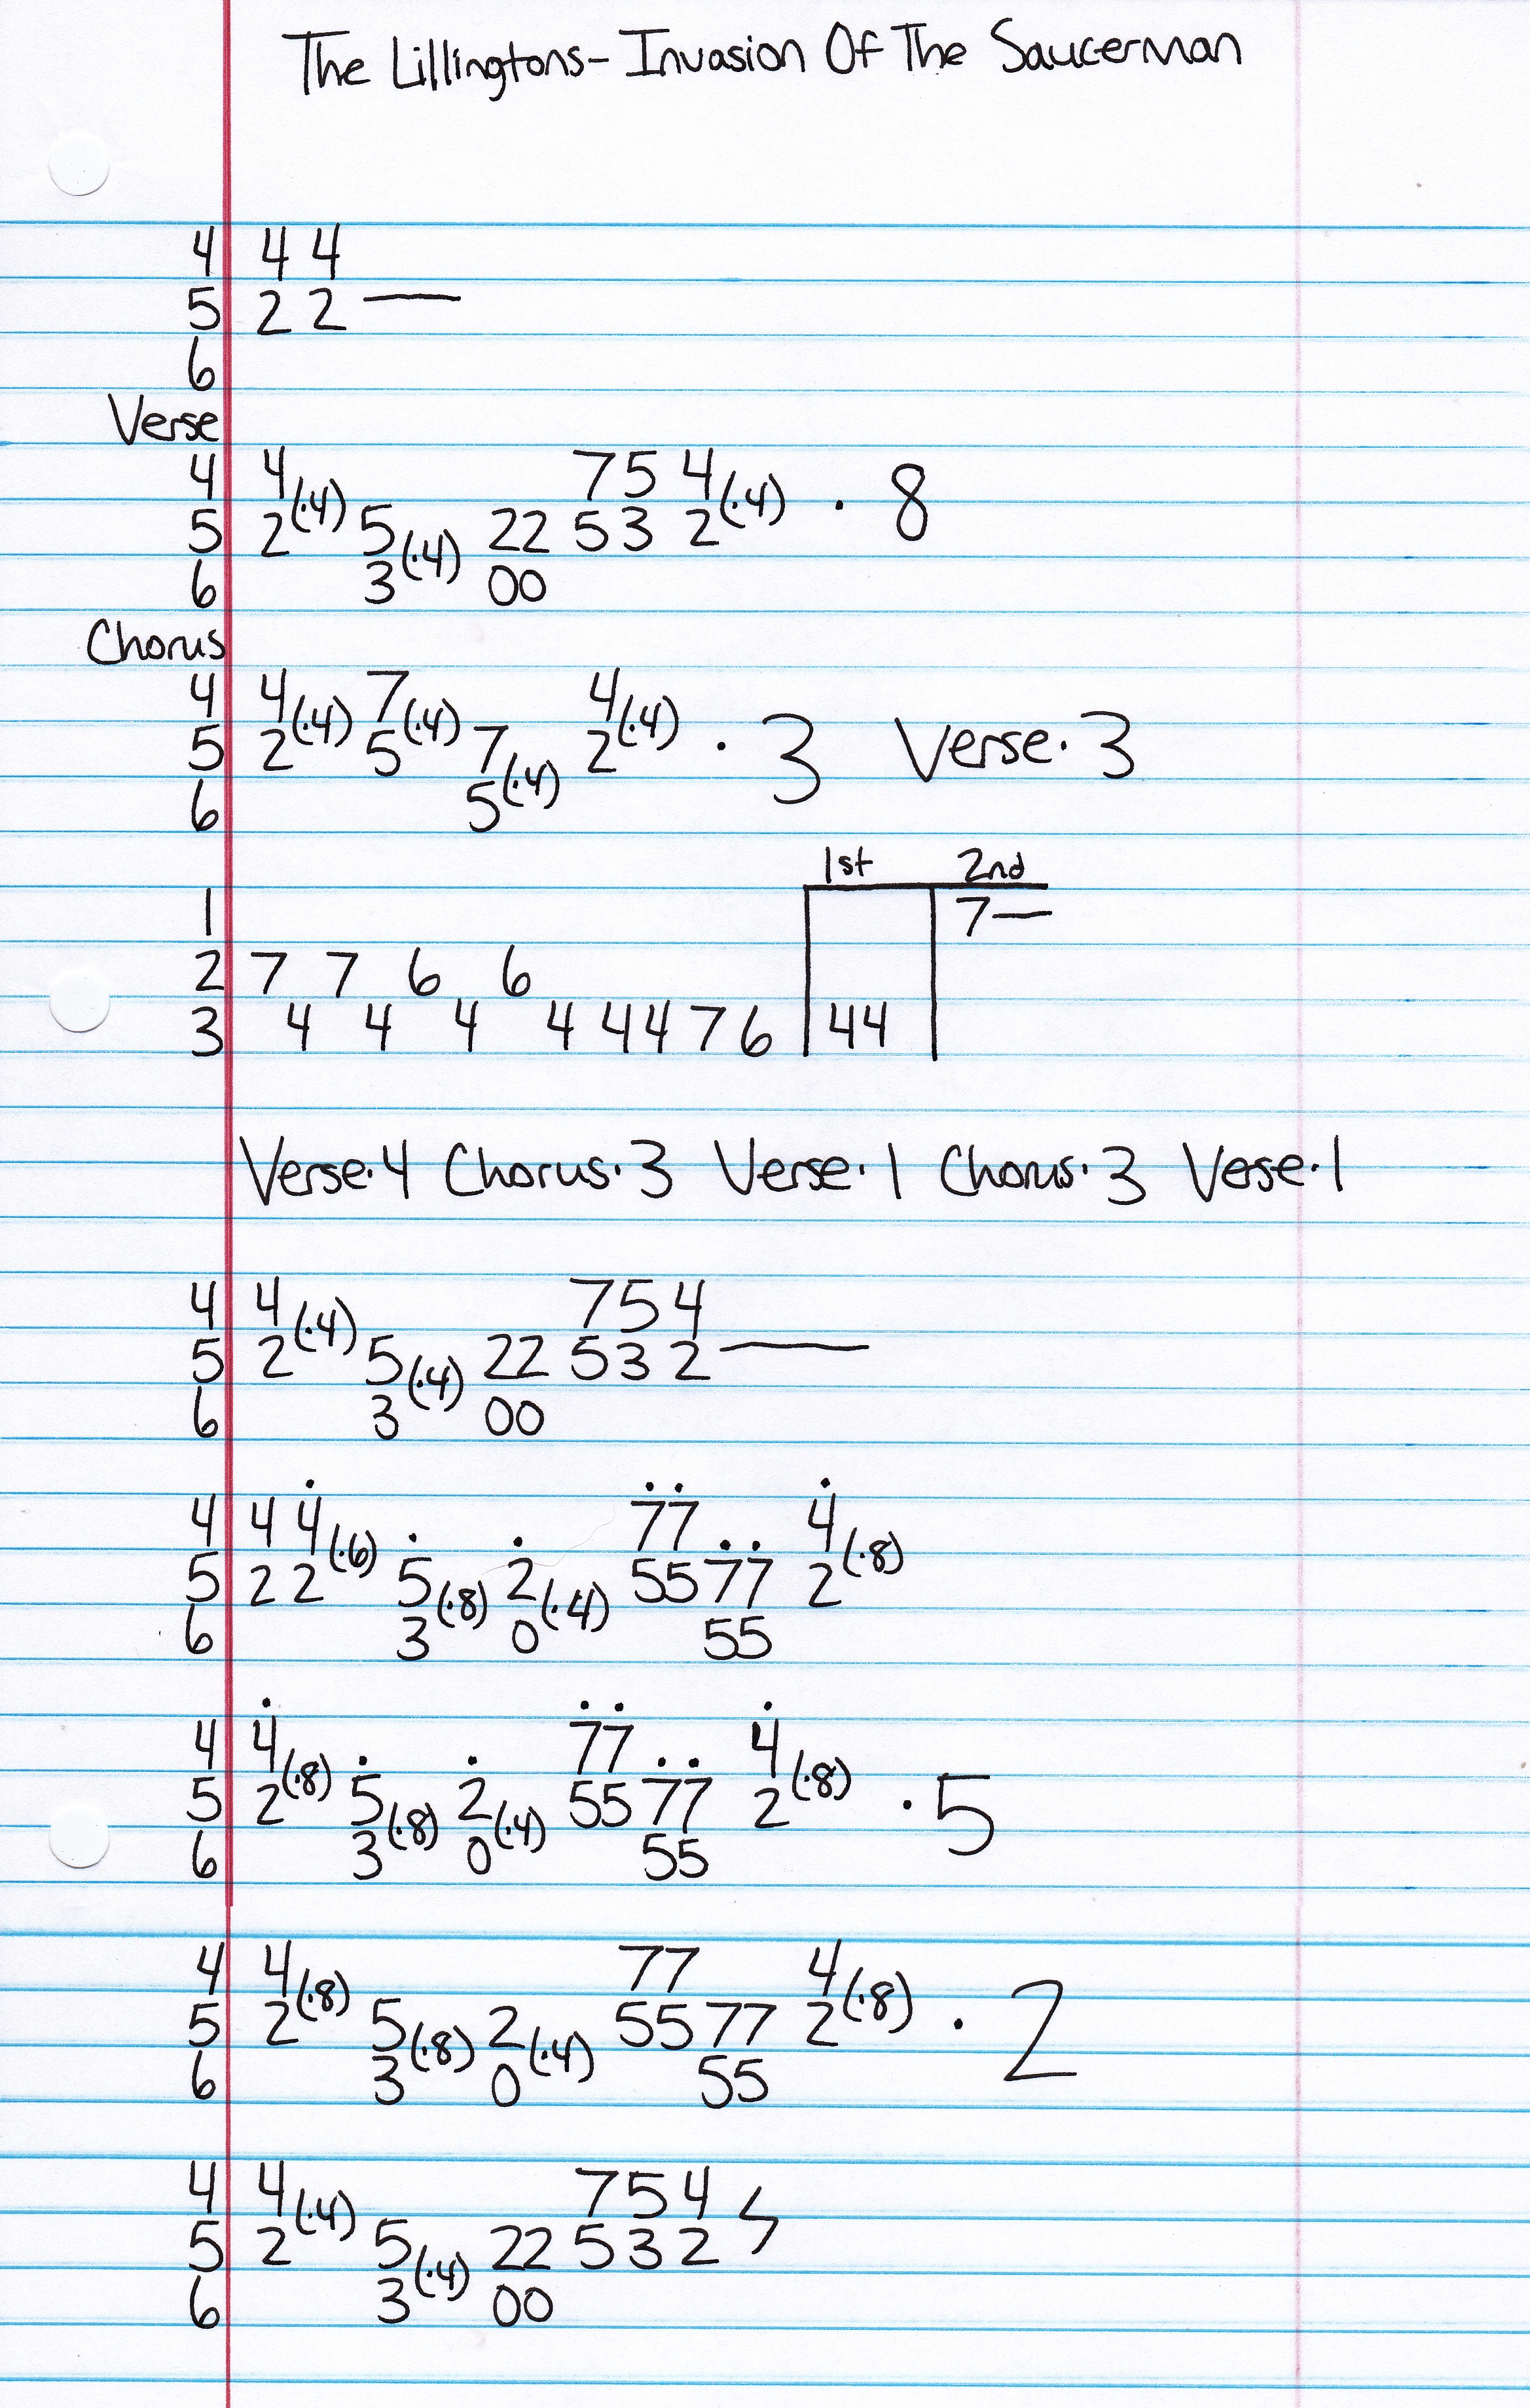 The Lillingtons- Invasion Of The Saucerman
4 4 4
5 2 2 —
6
Verse
4 4 7 5 4
5 2(·4) 5 22 5 3 2(·4) · 8
6 3(·4) 00
Chorus
4 4 7 4
5 2(·4) 5(·4) 7 2(·4) · 3 Verse·3
6 5(·4)
1st 2nd
1 7—
2 7 7 6 6
3 4 4 4 4 4 4 7 6 44
Verse·4 Chorus·3 Verse·1 Chorus·3 Vese·1
4 4 7 5 4
5 2(·4) 5 22 5 3 2 —
6 3(·4) 00
4 4 4 77 4
5 2 2(·6) 5 2 55 77 2(·8)
6 3(·8) 0(·4) 55
4 4 77 4
5 2(·8) 5 2 55 77 2(·8) · 5
6 3(·8) 0(·4) 55
4 4 77 4
5 2(·8) 5 2 55 77 2(·8) · 2
6 3(·8) 0(·4) 55
4 4 7 5 4
5 2(·4) 5 22 5 3 2
6 3(·4) 00